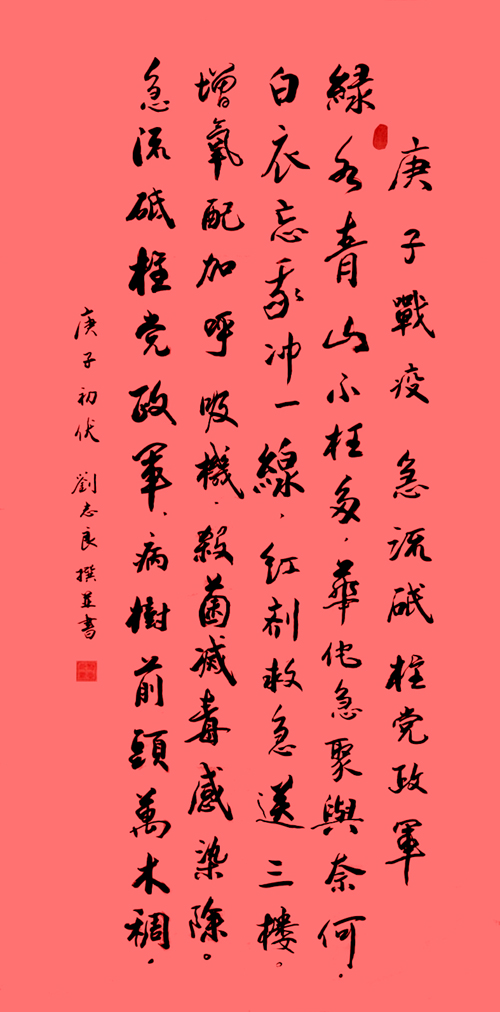 庚子戰疫 急流砥柱党政軍
綠水青山不枉多，華佗急聚與奈何。
白衣忘我冲一線，红剂救急送三楼。
增氧配加呼吸機，殺菌滅毒感染除。
急流砥柱党政軍，病樹前頭萬木稠。
庚子初伏 劉志良撰並書